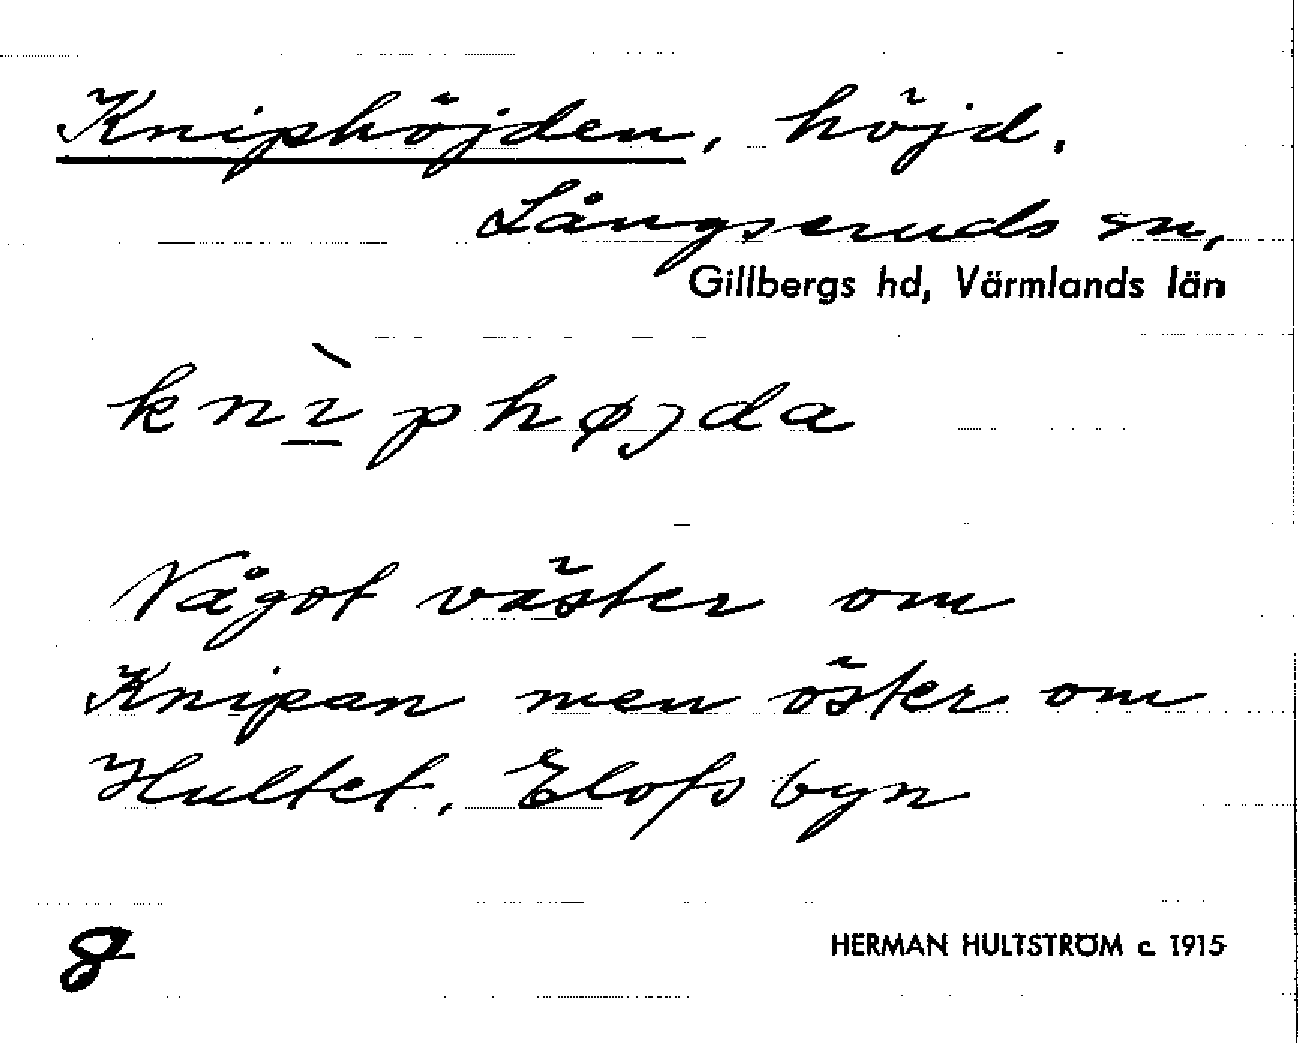 Kniphöjden, höjd.
Långseruds sn,
Gillbergs hd, Värmlands län
knı̲̀phøjda
Något väster om
Knipan men öster om
Hultet, Elofsbyn
8
HERMAN HULTSTRÖM c. 1915